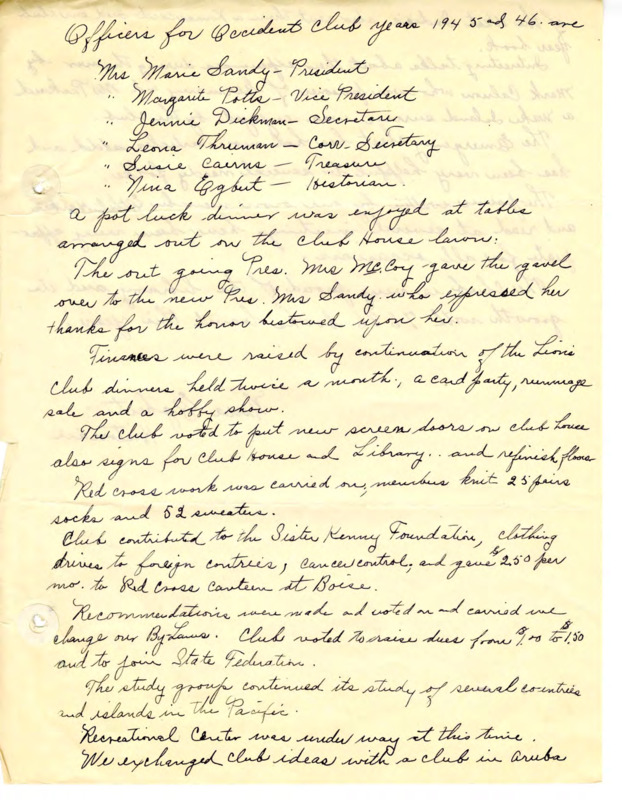 Officers for Occident Club years 1945 and 46. are
Mrs Marie Sandy - President
" Margarite Potts - Vice President
" Jennie Dickman - Secretary
" Leona Thruman - Corr. Secretary
" Susie Cairns - Treasure
" Nina Egbert - Historian.
A pot luck dinner was enjoyed at tables
arranged out on the club House lawn.
The out going Pres. Mrs McCoy gave the gavel
over to the new Pres. Mrs Sandy who expressed her
thanks for the honor bestowed upon her.
Finances were raised by continuation of the Lions
Club dinners held twice a month, a card party, rummage
sale and a hobby show.
The club voted to put new screen doors on club house
also signs for Club House and Library.. and refinish floors
Red cross work was carried on, members knit 25 pairs
socks and 52 sweaters.
Club contributed to the Sister Kenny Foundation, clothing
drives to foreign contries, cancer control, and gave $2.50 per
mo. to Red Cross canteen at Boise.
Recommendations were made and voted on and carried we
change our By Laws. Club voted to raise dues from $1.00 to $1.50
and to join State Federation.
The study group contenued its study of several countries
and islands in the Pacific.
Recreational Center was under way at this time.
We exchanged club ideas with a club in Aruba